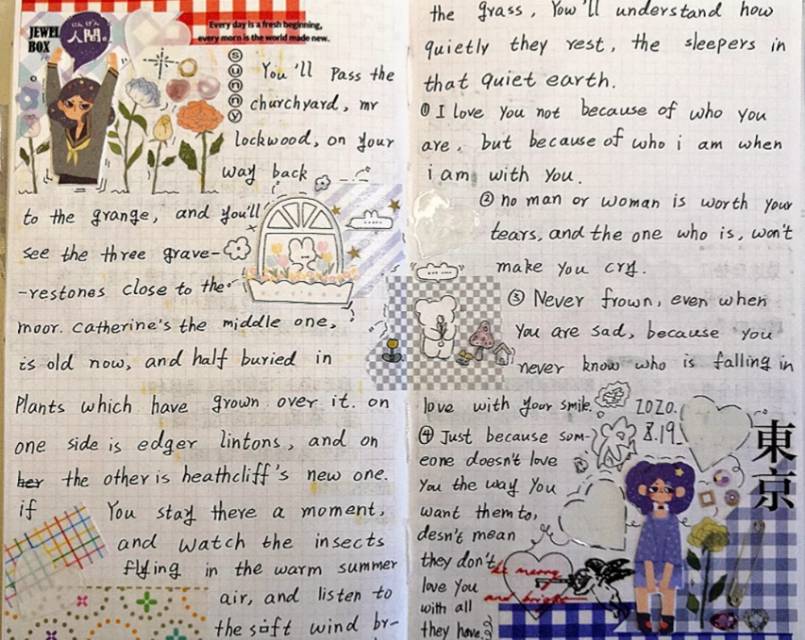 Every day is a fresh beginning,
every morn is the world made new.
JEWEL
BOX
にんげん
人間。
sunny
You'll Pass the
churchyard, mr
lockwood, on your
way back
to the grange, and you'll
see the three grave-
-restones close to the
moor. Catherine's the middle one,
is old now, and half buried in
Plants which have grown over it. on
one side is edger lintons, and on
her the other is heathcliff's new one.
if You stay there a moment,
and watch the insects
flying in the warm summer
air, and listen to
the soft wind br-
the grass, You'll understand how
quietly they rest, the sleepers in
that quiet earth.
① I love you not because of who you
are, but because of who i am when
i am with you.
② no man or woman is worth your
tears, and the one who is, won't
make you cry.
③ Never frown, even when
you are sad, because you
never know who is falling in
love with your smile.
2020.
8.19
④ Just because som-
eone doesn't love
You the way You
want them to,
desn't mean
they don't
love You
with all
they have.
be merry
and bright
東京